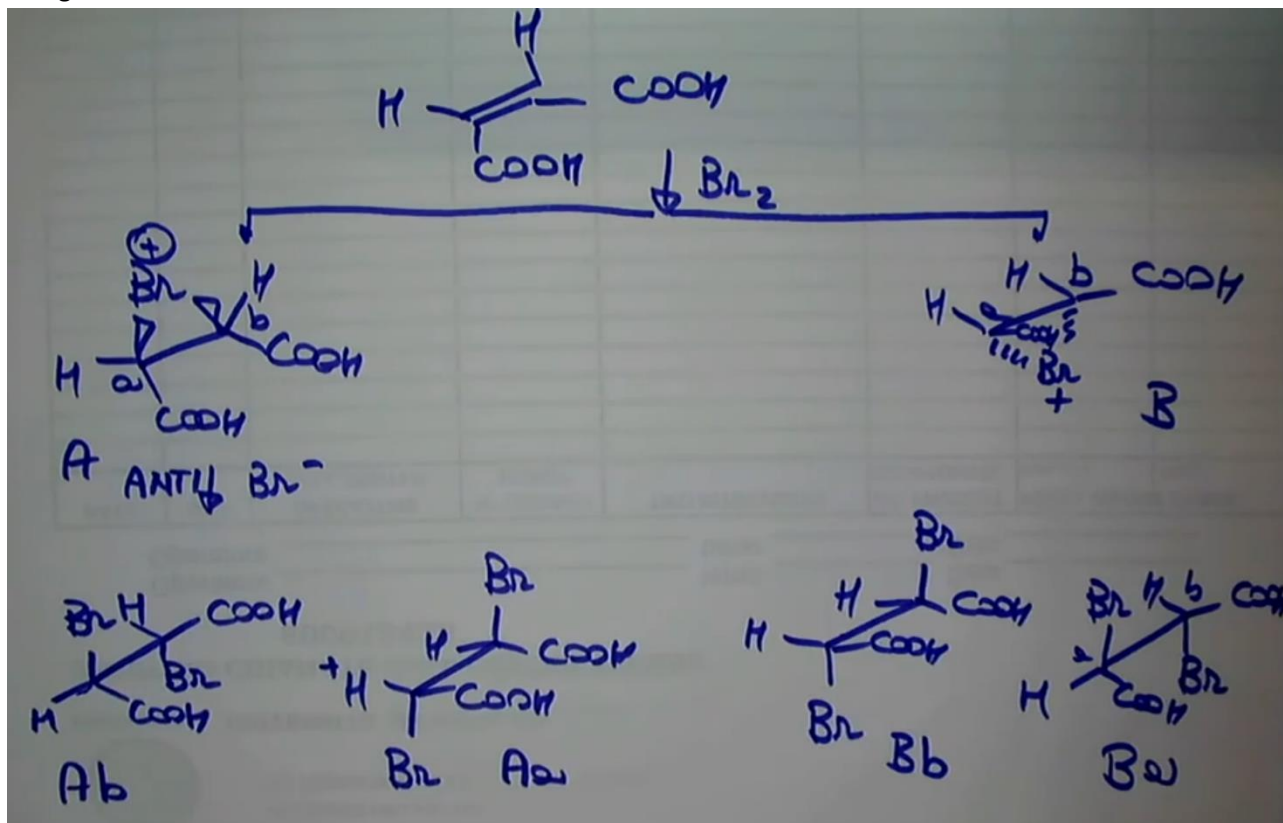 H
H COOH
COOH Br2
+
Br H b COOH
H a COOH
A
ANTI Br-
H b COOH
H a COOH
Br
+ B
Br H COOH
H Br COOH
Ab
+
Br
H COOH
H COOH
Br Aa
Br
H COOH
H COOH
Br Bb
Br H b COOH
a H COOH Br
Ba